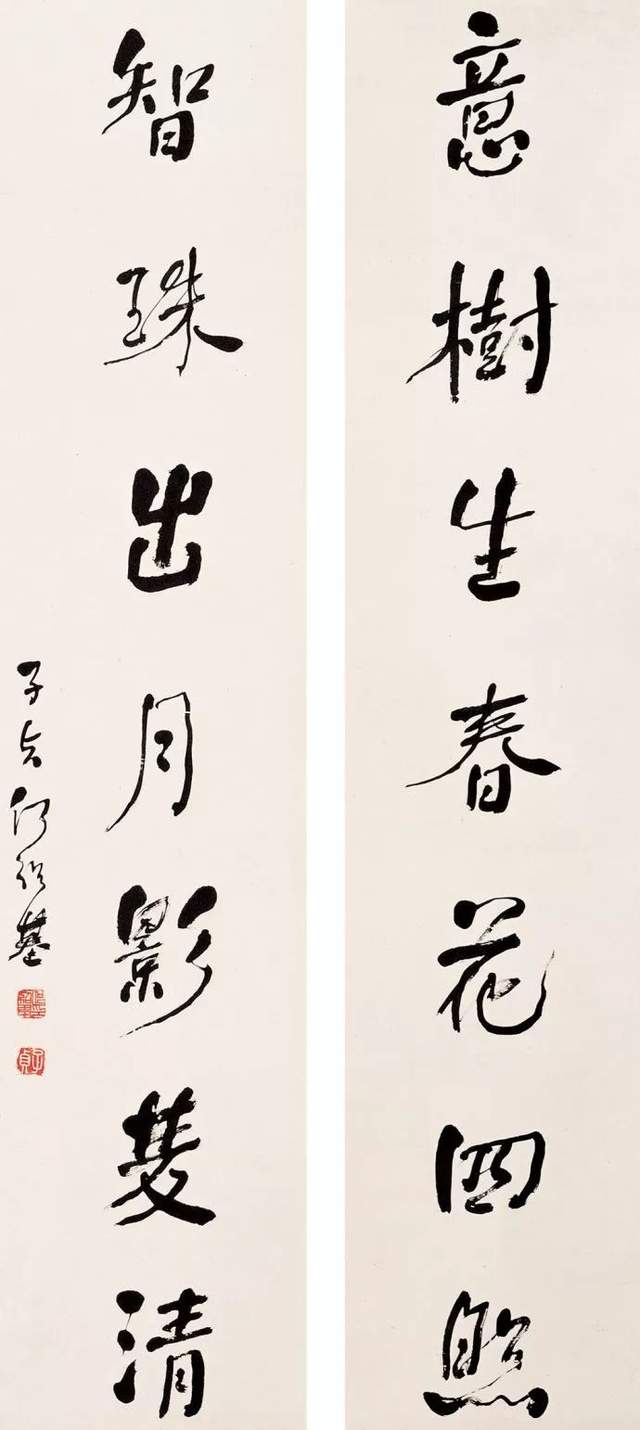 意樹生春花四照
智珠出月影雙清
子貞何紹基
子貞